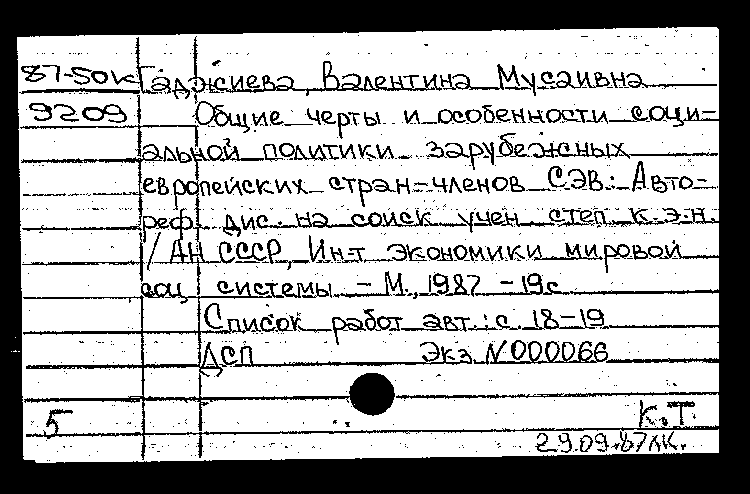 87-50к Гаджиева, Валентина Мусаивна
9209 Общие черты и особенности соци-
альной политики зарубежных
европейских стран-членов СЭВ: Авто-
реф. дис. на соиск учен степ к.э.н.
/ АН СССР, Ин-т экономики мировой
соц системы. - М., 1987 - 19с
Список работ авт.: с 18-19
ДСП Экз N000066
5 К.Т.
29.09.87 лк.